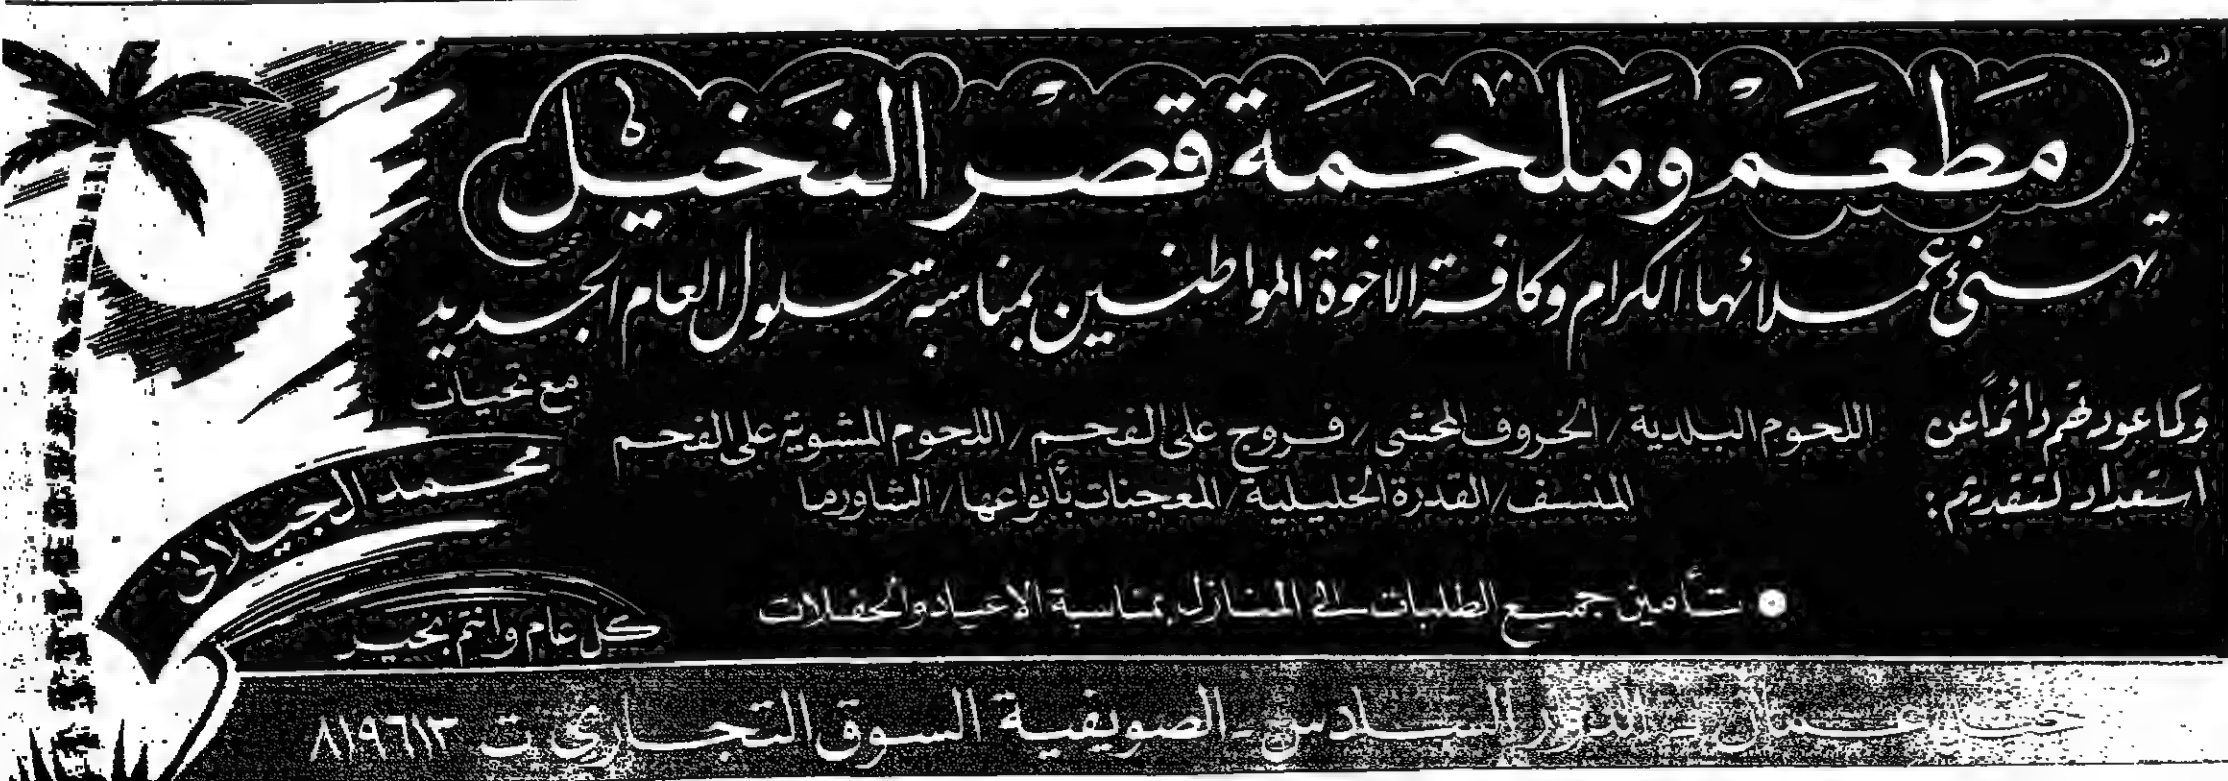 مَطعَم وَمَلحَمَة قصر النَخيْل
تهنئ عملائها الكرام وكافة الاخوة المواطنين بمناسبة حلول العام الجديد
وكما عودتهم دائماً عن
استعداد لتقديم:
اللحوم البلدية / الخروف المحشي / فروج على الفحم / اللحوم المشوية على الفحم
المنسف / القدرة الخليلية / المعجنات بأنواعها / الشاورما
• تأمين جميع الطلبات الى المنازل بمناسبة الاعياد والحفلات
مع تحيات
محمد الجيلاني
كل عام وانتم بخير
جبل عمان - الدوار السادس - الصويفية السوق التجاري ت ٨١٩٦١٣